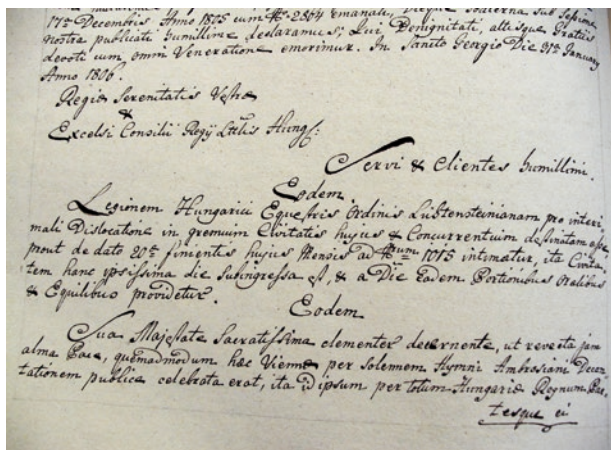 17ª Decembris Anno 1805 cum Nro 2864 emanati, Dieque hodierna sub sessione
nostra publicati humillime declaramus; Cui Benignitati, altisque Gratiis
devoti cum omni Veneratione emorimur. In Sancto Georgio Die 31ª January
Anno 1806.
Regiæ Serenitatis Vestræ
&
Excelsi Consilii Regij Lttlis Hung:
Servi & Clientes humillimi.
Eodem
Legionem Hungarici Equestris Ordinis Lichtensteinianam, pro interi
mali Dislocatione in gremium Civitatis hujus & Concurrentium destinatam esse,
prout de dato 20ª finientis hujus Mensis ad Nrum 1015 intimatur, ita Civita
tem hanc ipsissima die subingressa est, & a Die eadem Portionibus Oralibus
& Equilibus providetur.
Eodem
Sua Majestate Sacratissima clementer decernente, ut revecta jam
alma Pace, quemadmodum hæc Viennæ per solennem Hymni Ambrosiani Decan
tationem publice celebrata erat, ita id ipsum per totum Hungariæ Regnum Par
tesque ei